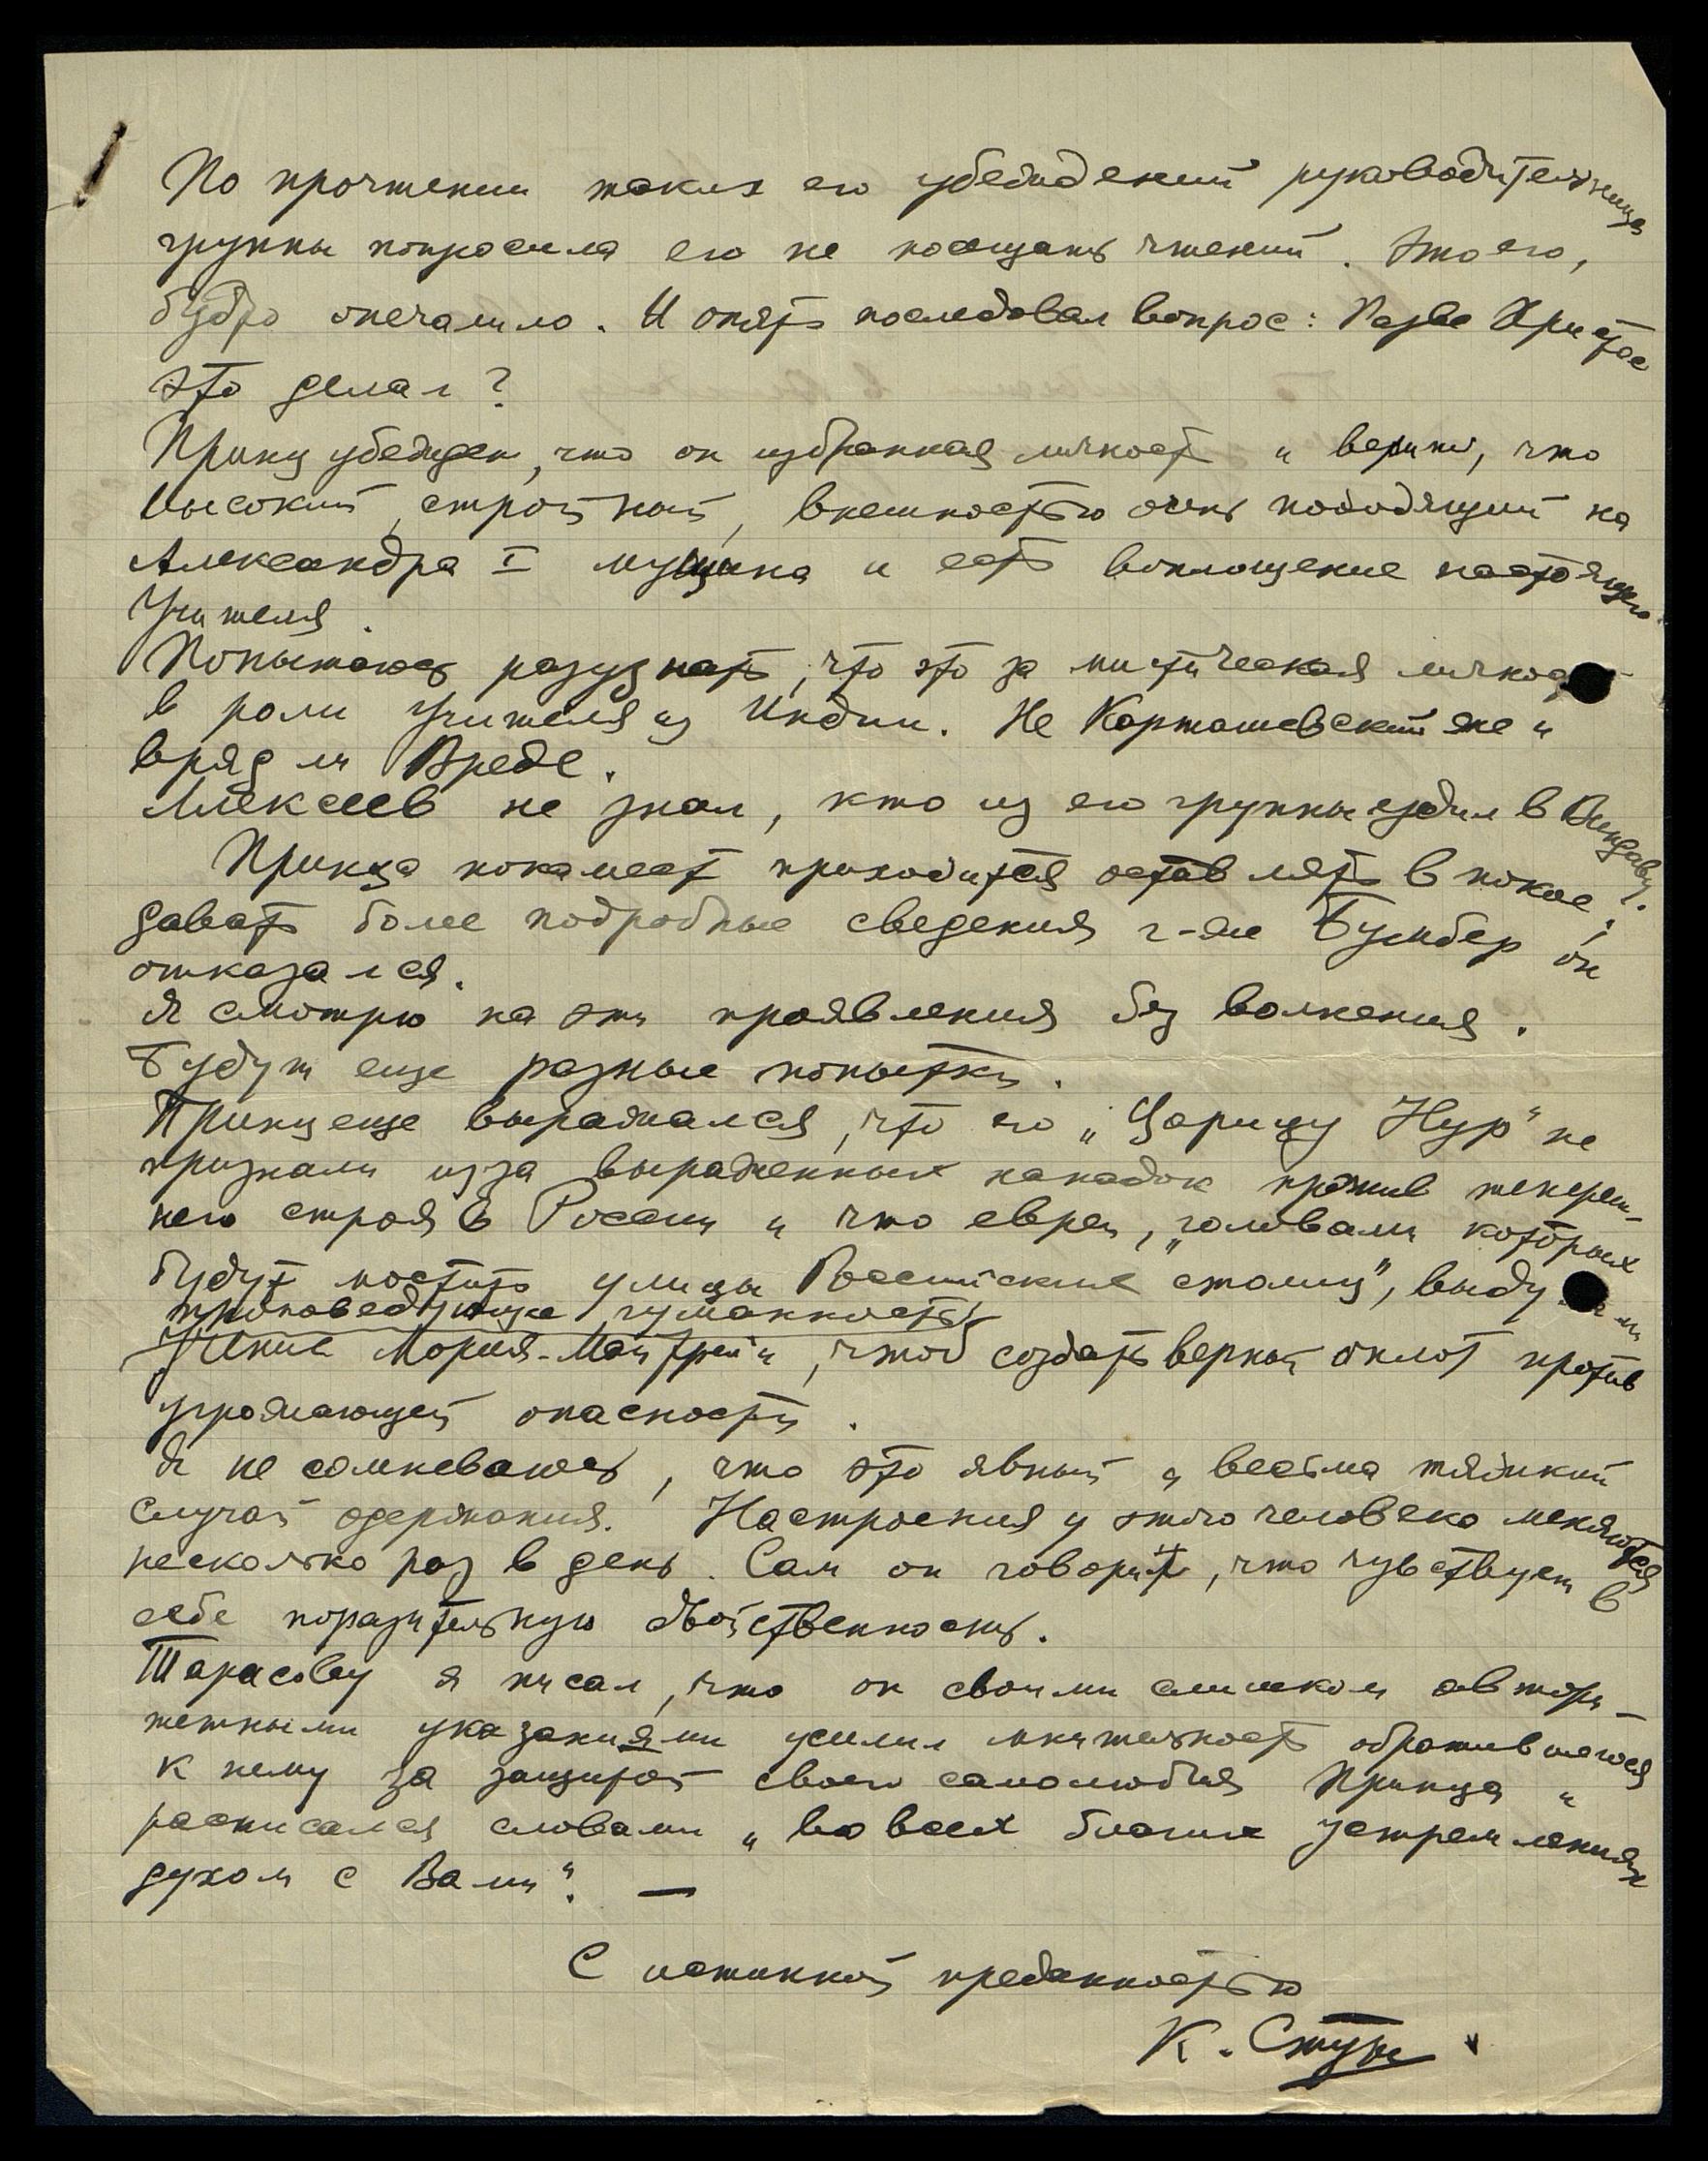 По прочтении таких его убеждений руководительница
группы попросила его не посещать чтений. Это его,
будто опечалило. И опять последовал вопрос: Разве Христос
это делал?
Принц убежден, что он избранная личность и верит, что
высокий, стройный, внешностью очень походящий на
Александра I мущина и есть воплощение настоящего
Учителя.
Попытаюсь разузнать, что это за мистическая личность
в роли Учителя из Индии. Не Карташевский же и
вряд ли Вреде.
Алексеев не знал, кто из его группы ездил в Виндаву.
Принца покамест приходится оставлять в покое;
давать более подробные сведения г-же Буцибер он
отказался.
Я смотрю на эти проявления без волнения.
Будут еще разные попытки.
Принц еще выражался, что его „Царицу Нур" не
признали из за выраженных нападок против тепереш-
него строя в России и что евреи, „головами которых
будут мостить улицы Российских столиц", выдумали
проповедующее гуманность
Учение Мория-Майтрейи, чтоб создать верный оплот против
угрожающей опасности.
Я не сомневаюсь, что это явный и весьма тяжкий
случай одержания. Настроения у этого человека меняются
несколько раз в день. Сам он говорит, что чувствует в
себе поразительную двойственность.
Тарасову я писал, что он своими слишком автори-
тетными указаниями усилил мнительность обратившегося
к нему за защитой своего самолюбия Принца и
расписался словами „во всех благих устремлениях
духом с Вами". —
С истинной преданностью
К. Стуре